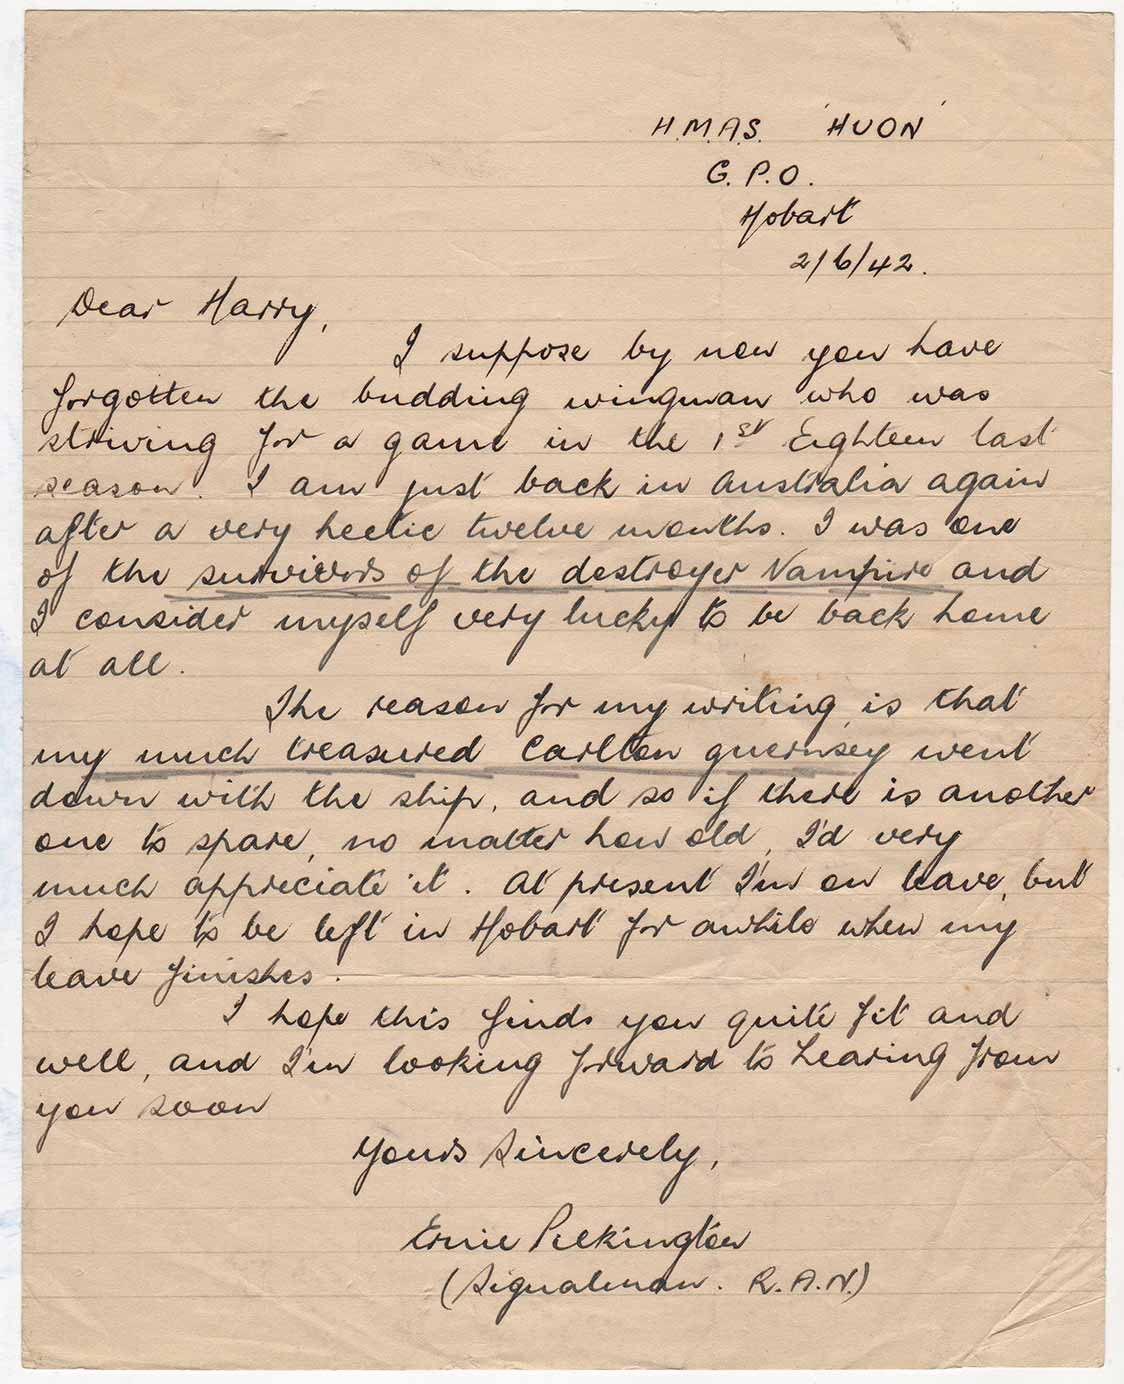 H.M.A.S. 'HUON'
G.P.O.
Hobart
2/6/42.
Dear Harry,
I suppose by now you have
forgotten the budding wingman who was
striving for a game in the 1st Eighteen last
season. I am just back in Australia again
after a very hectic twelve months. I was one
of the survivors of the destroyer Vampire and
I consider myself very lucky to be back home
at all.
The reason for my writing, is that
my much treasured Carlton guernsey went
down with the ship, and so if there is another
one to spare, no matter how old, I'd very
much appreciate it. At present I'm on leave, but
I hope to be left in Hobart for awhile when my
leave finishes.
I hope this finds you quite fit and
well, and I'm looking forward to hearing from
you soon
Yours Sincerely,
Ernie Pilkington
(Signalman. R.A.N.)